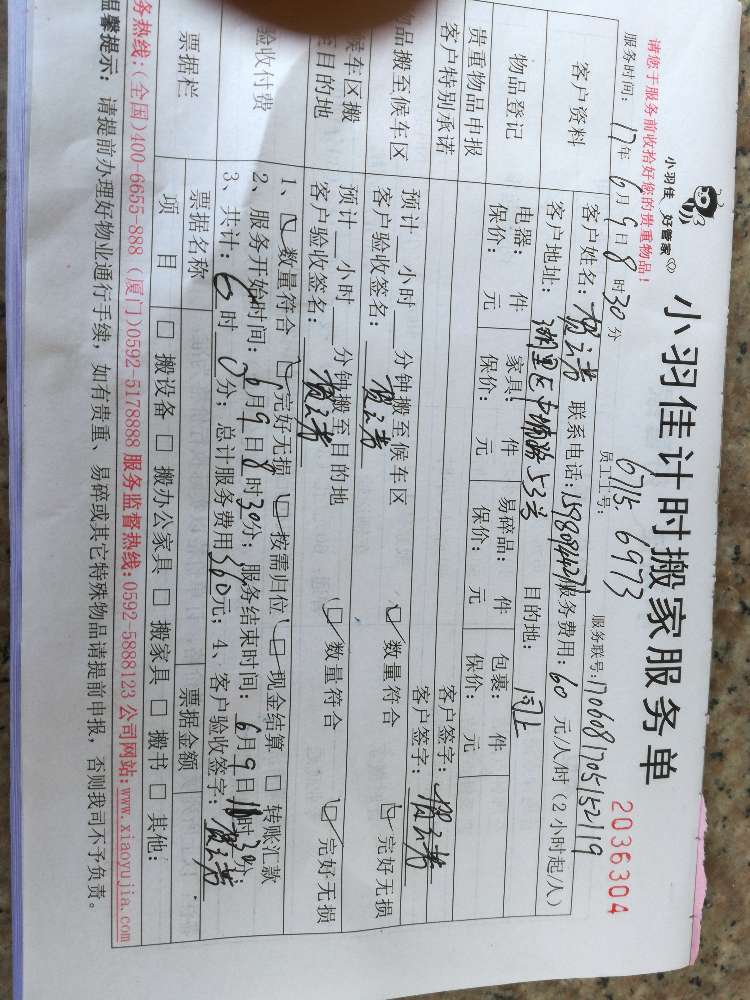 小羽佳 好管家
小羽佳计时搬家服务单
2036304
请您于服务前收拾好您的贵重物品!
员工工号: 6715. 6973
服务联号: 1706081705152119
服务时间: 17年6月9日8时30分
客户资料
客户姓名: 联系电话: 服务费用: 60 元/人/时(2小时起/人)
客户地址: 湖里区 53号 目的地: 同上
物品登记
电器: 件 家具: 件 易碎品: 件 包裹: 件
贵重物品申报
保价: 元 保价: 元 保价: 元 保价: 元
客户特别承诺
客户签字:
客户签字:
物品搬至候车区
预计 小时 分钟搬至候车区 ☑ 数量符合 ☑ 完好无损
客户验收签名:
候车区搬至目的地
预计 小时 分钟搬至目的地 ☑ 数量符合 ☑ 完好无损
客户验收签名:
验收付费
1、☑ 数量符合 ☑ 完好无损 ☑ 按需归位 ☑ 现金结算 □ 转账汇款
2、服务开始时间: 6月9日8时30分; 服务结束时间: 6月9日11时30分;
3、共计: 6时0分; 总计服务费用360元; 4、客户验收签字:
票据栏
票据名称 票据金额
项 目 □ 搬设备 □ 搬办公家具 □ 搬家具 □ 搬书 □ 其他:
务热线:(全国)400-6655-888 (厦门)0592-5178888 服务监督热线:0592-5888123 公司网站:www.xiaoyujia.com
温馨提示: 请提前办理好物业通行手续, 如有贵重、易碎或其它特殊物品请提前申报, 否则我司不予负责。